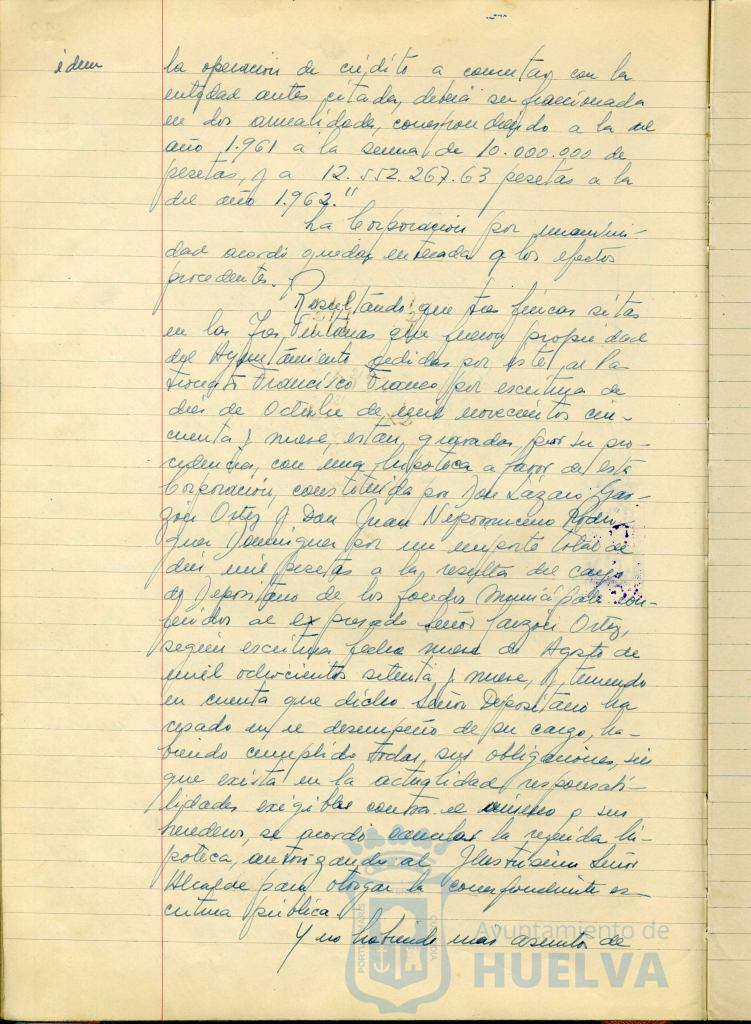 idem
la operación de crédito a concertar con la
entidad antes citada, deberá ser fraccionada
en dos anualidades, correspondiendo a la del
año 1.961 a la suma de 10.000.000 de
pesetas, y a 12.552.267.63 pesetas a la
del año 1.962."
La Corporación por unanimi-
dad acordó quedar enterada a los efectos
procedentes.
Resultando que tres fincas sitas
en las Tres Ventanas que fueron propiedad
del Ayuntamiento cedidas por este al Pa-
tronato Francisco Franco por escritura de
diez de Octubre de mil novecientos cin-
cuenta y nueve, están gravadas, por su pro-
cedencia, con una hipoteca a favor de esta
Corporación, constituida por Don Lázaro Gar-
zón Ortiz y Don Juan Nepomuceno Rodri-
guez Dominguez por un importe total de
diez mil pesetas a la resulta del cargo
de Depositario de los fondos Municipales con-
feridos al expresado Señor Garzón Ortiz,
según escritura fecha nueve de Agosto de
mil ochocientos setenta y nueve, y teniendo
en cuenta que dicho Señor Depositario ha
cesado en el desempeño de su cargo, ha-
biendo cumplido todas sus obligaciones, sin
que exista en la actualidad responsabi-
lidades exigibles contra el mismo o sus
herederos, se acordó cancelar la referida hi-
poteca, autorizando al Ilustrísimo Señor
Alcalde para otorgar la correspondiente es-
critura pública.
Y no habiendo más asuntos de
Ayuntamiento de
HUELVA